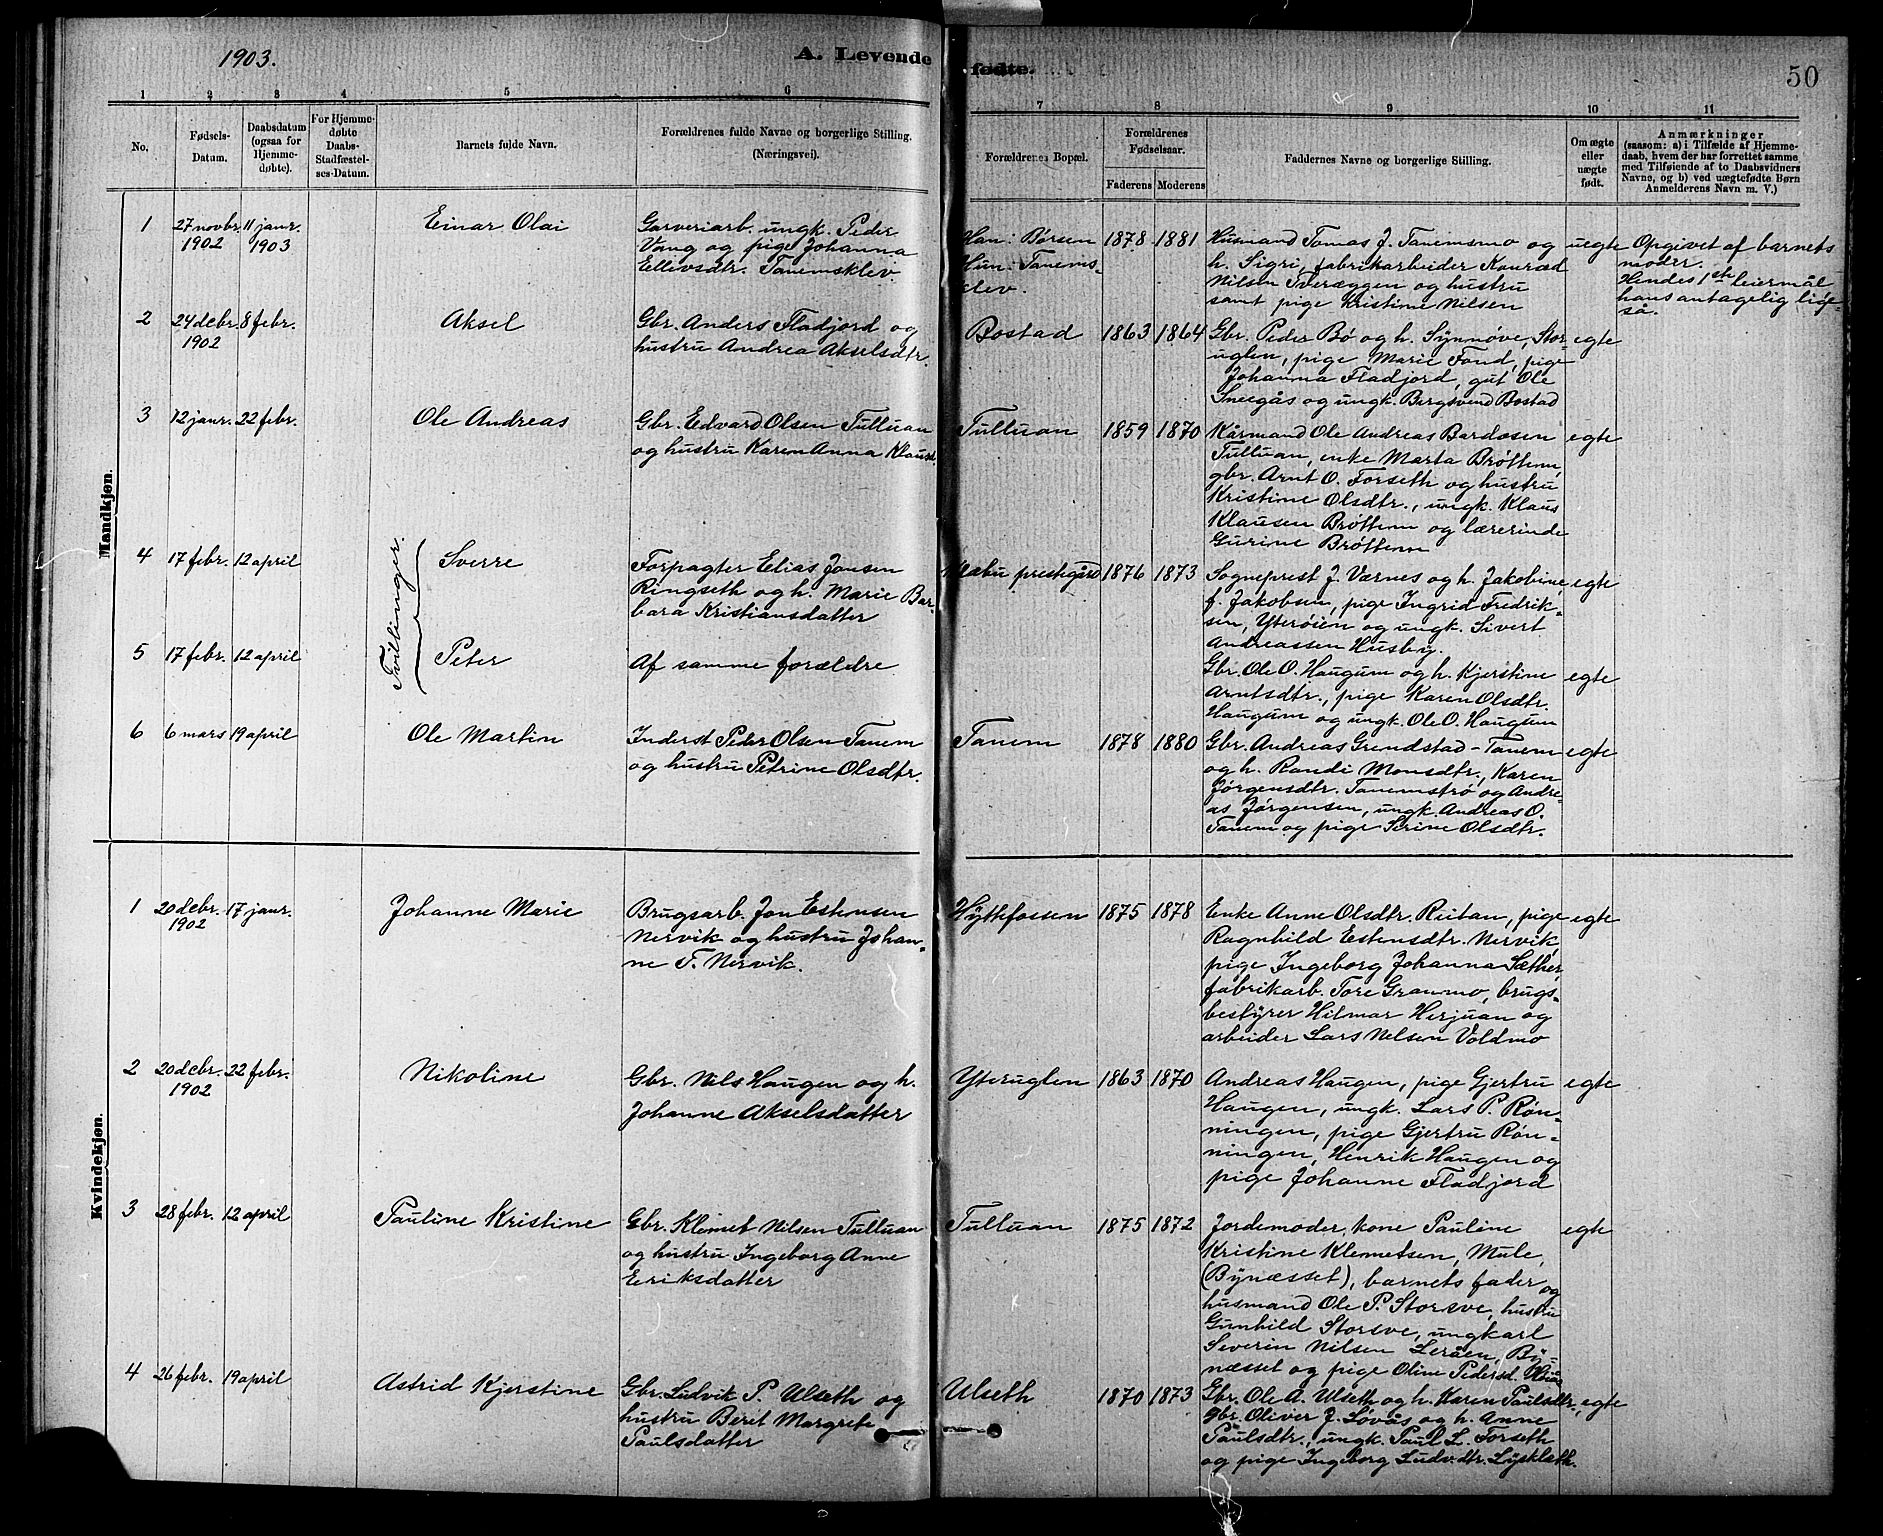 1903.
A. Levende fødte.
50
1 2 3 4 5 6 7 8 9 10 11
No.
Fødsels-Datum.
Daabsdatum (ogsaa for Hjemmedøbte).
For Hjemmedøbte Daabs-Stadfæstelses-Datum.
Barnets fulde Navn.
Forældrenes fulde Navne og borgerlige Stilling. (Næringsvei).
Forældrenes Bopæl.
Forældrenes Fødselsaar.
Faderens Moderens
Faddernes Navne og borgerlige Stilling.
Om ægte eller uægte født.
Anmærkninger
(saasom: a) i Tilfælde af Hjemmedaab, hvem der har forrettet samme med Tilføiende af to Daabsvidners Navne, og b) ved uægtefødte Børn Anmelderens Navn m. V.)
Mandkjøn.
1 27 novbr. 1902 11 janr. 1903
Einar Olai
Garveriarb. ungk. Peder
Vang og pige Johanna
Ellevsdtr. Tanemsklev
Han: Børsen
Hun: Tanems-
klev.
1878 1881
Husmand Tomas J. Tanemsmo og
h. Sigri, fabrikarbeider Konrad
Nilsen Tveræggen og hustru
samt pige Kristine Nilsen
uegte
Opgivet af barnets
moder.
Hendes 1ste leiermål
hans antagelig lige-
så.
2 24 debr. 1902 8 febr.
Aksel
Gbr. Anders Fladjord og
hustru Andrea Akselsdtr.
Bostad
1863 1864
Gbr. Peder Bø og h. Synnøve, Stor-
uglen, pige Marie Fond, pige
Johanna Fladjord, gut Ole
Sneegås og ungk. Bergsvend Bostad
egte
3 12 janr. 22 febr.
Ole Andreas
Gbr. Edvard Olsen Tulluan
og hustru Karen Anna Klausd.
Tulluan
1859 1870
Kårmand Ole Andreas Bardosen
Tulluan, enke Marta Brøttem,
gbr. Arnt O. Forseth og hustru
Kristine Olsdtr., ungk. Klaus
Klausen Brøttem og lærerinde
Gurine Brøttem
egte
4 17 febr. 12 april
Tvillinger.
Sverre
Forpagter Elias Jonsen
Ringseth og h. Marie Bar-
bara Kristiansdatter
Klæbu prestegård
1876 1873
Sogneprest J. Værnes og h. Jakobine,
f. Jakobsen, pige Ingrid Fredrik-
sen, Ytterøien og ungk. Sivert
Andreassen Husby.
egte
5 17 febr. 12 april
Peter
Af samme forældre
Gbr. Ole O. Haugum og h. Kjerstine
Arntsdtr., pige Karen Olsdtr.
Haugum og ungk. Ole O. Haugum
egte
6 6 mars 19 april
Ole Martin
Inderst Peder Olsen Tanem
og hustru Petrine Olsdtr.
Tanem
1878 1880
Gbr. Andreas Grendstad-Tanem
og h. Randi Monsdtr., Karen
Jørgensdtr. Tanemstrø og Andre-
as Jørgensen, ungk. Andreas O.
Tanem og pige Serine Olsdtr.
egte
Kvindekjøn.
1 20 debr. 1902 17 janr.
Johanne Marie
Brugsarb. Jon Estensen
Nervik og hustru Johan-
ne T. Nervik.
Hyttfossen
1875 1878
Enke Anne Olsdtr. Reitan, pige
Ragnhild Estensdtr. Nervik,
pige Ingeborg Johanna Sæther,
fabrikarb. Tore Granmo, brugs-
bestyrer Hilmar Herjuan og
arbeider Lars Nelsen Voldmo
egte
2 20 debr. 1902 22 febr.
Nikoline
Gbr. Nils Haugen og h.
Johanne Akselsdatter
Yteruglen
1863 1870
Andreas Haugen, pige Gjertru
Haugen, ungk. Lars P. Røn-
ningen, pige Gjertru Røn-
ningen, Henrik Haugen og
pige Johanne Fladjord
egte
3 28 febr. 12 april
Pauline Kristine
Gbr. Klemet Nilsen Tulluan
og hustru Ingeborg Anne
Eriksdatter
Tulluan
1875 1872
Jordemoder, kone Pauline
Kristine Klemetsen, Mule,
(Bynæsset), barnets fader og
husmand Ole P. Storsve, hustru
Gunhild Storsve, ungkarl
Severin Nilsen Leråen, By-
næsset og pige Oline Pedersd.
egte
4 26 febr. 19 april
Astrid Kjerstine
Gbr. Ludvik P. Ulseth og
hustru Berit Margrete
Paulsdatter
Ulseth
1870 1873
Gbr. Ole A. Ulseth og h. Karen Paulsdtr.,
gbr. Oliver J. Løvås og h. Anne
Paulsdtr., ungk. Paul L. Forseth
og pige Ingeborg Ludv.dtr. Lysklæth.
egte